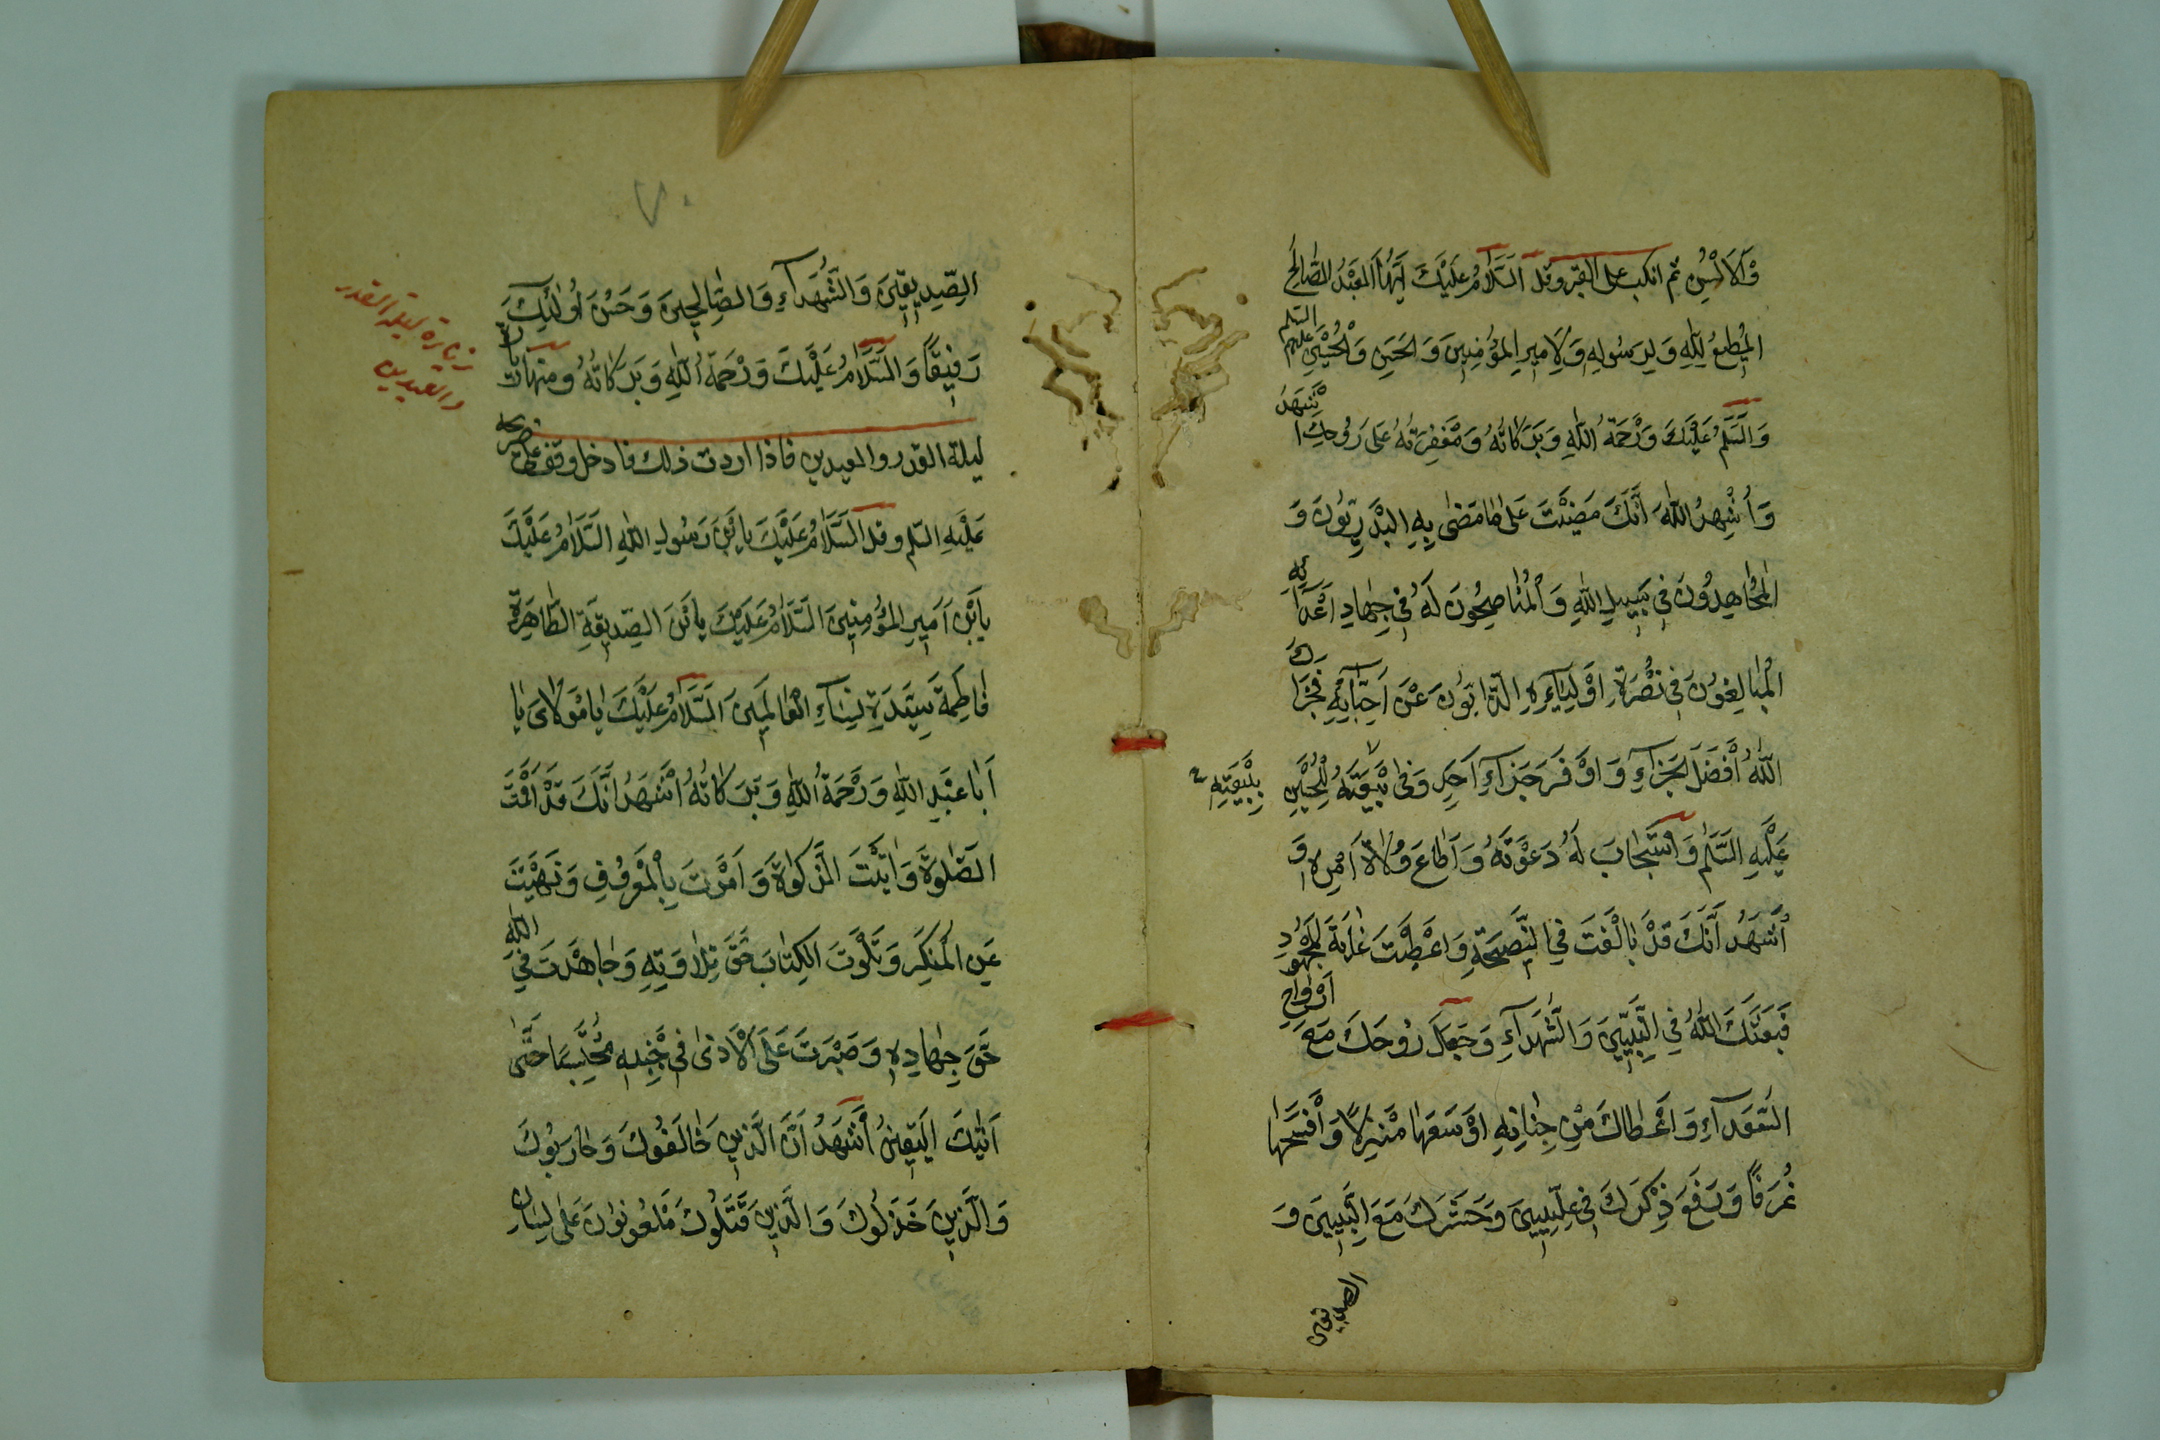 وَالْاَلْسُنِ ثم انكب على القبر وقل اَلسَّلَامُ عَلَيْكَ اَيُّهَا الْعَبْدُ الصَّالِحُ
الْمُطِيعُ لِلّٰهِ وَلِرَسُولِهِ وَلِاَمِيرِ الْمُؤْمِنِينَ وَالْحَسَنِ وَالْحُسَيْنِ عليهم السلم
وَالسَّلَمُ عَلَيْكَ وَرَحْمَةُ اللّٰهِ وَبَرَكَاتُهُ وَمَغْفِرَتُهُ عَلَى رُوحِكَ اَشْهَدُ
وَاُشْهِدُ اللّٰهَ اَنَّكَ مَضَيْتَ عَلَى مَا مَضٰى بِهِ الْبَدْرِيُّونَ وَ
الْمُجَاهِدُونَ فِي سَبِيلِ اللّٰهِ وَالْمُنَاصِحُونَ لَهُ فِي جِهَادِ اَعْدَائِهِ
الْمُبَالِغُونَ فِي نُصْرَةِ اَوْلِيَائِهِ الذَّابُّونَ عَنْ اَحِبَّائِهِ فَجَزَاكَ
اللّٰهُ اَفْضَلَ الْجَزَآءِ وَاَوْفَرَ جَزَآءِ اَحَدٍ وَفٰى بَيْعَتَهُ لِلْحُسَيْنِ
بِبَيْعَتِهِ
عَلَيْهِ السَّلٰم وَاسْتَجَابَ لَهُ دَعْوَتَهُ وَاَطَاعَ وُلَاةَ اَمْرِهِ وَ
اَشْهَدُ اَنَّكَ قَدْ بَالَغْتَ فِي النَّصِيحَةِ وَاَعْطَيْتَ غَايَةَ الْمَجْهُودِ
فَبَعَثَكَ اللّٰهُ فِي النَّبِيِّينَ وَالشُّهَدَآءِ وَجَعَلَ رُوحَكَ مَعَ اَرْوَاحِ
السُّعَدَآءِ وَاَعْطَاكَ مِنْ جِنَانِهِ اَوْسَعَهَا مَنْزِلًا وَاَفْسَحَهَا
غُرَفًا وَرَفَعَ ذِكْرَكَ فِي عِلِّيِّينَ وَحَشَرَكَ مَعَ النَّبِيِّينَ وَ
الصديقين
٧٠
الصِّدِّيقِينَ وَالشُّهَدَآءِ وَالصَّالِحِينَ وَحَسُنَ اُولٰئِكَ
رَفِيقًا وَالسَّلَامُ عَلَيْكَ وَرَحْمَةُ اللّٰهِ وَبَرَكَاتُهُ ومنها زيارة
زيارة ليلة القدر
والعيدين
ليلة القدر والعيدين فاذا اردت ذلك فادخل وقف على ضريحه
عَلَيْهِ السّلم وقل اَلسَّلَامُ عَلَيْكَ يَابْنَ رَسُولِ اللّٰهِ السَّلَامُ عَلَيْكَ
يَابْنَ اَمِيرِ الْمُؤْمِنِينَ السَّلَامُ عَلَيْكَ يَابْنَ الصِّدِّيقَةِ الطَّاهِرَةِ
فَاطِمَةَ سَيِّدَةِ نِسَآءِ الْعَالَمِينَ السَّلَامُ عَلَيْكَ يَا مَوْلَايَ يَا
اَبَا عَبْدِ اللّٰهِ وَرَحْمَةُ اللّٰهِ وَبَرَكَاتُهُ اَشْهَدُ اَنَّكَ قَدْ اَقَمْتَ
الصَّلٰوةَ وَاٰتَيْتَ الزَّكٰوةَ وَاَمَرْتَ بِالْمَعْرُوفِ وَنَهَيْتَ
عَنِ الْمُنْكَرِ وَتَلَوْتَ الْكِتَابَ حَقَّ تِلَاوَتِهِ وَجَاهَدْتَ فِي اللّٰهِ
حَقَّ جِهَادِهِ وَصَبَرْتَ عَلَى الْاَذٰى فِي جَنْبِهِ مُحْتَسِبًا حَتّٰى
اَتٰيكَ الْيَقِينُ اَشْهَدُ اَنَّ الَّذِينَ خَالَفُوكَ وَحَارَبُوكَ
وَالَّذِينَ خَذَلُوكَ وَالَّذِينَ قَتَلُوكَ مَلْعُونُونَ عَلٰى لِسَانِ